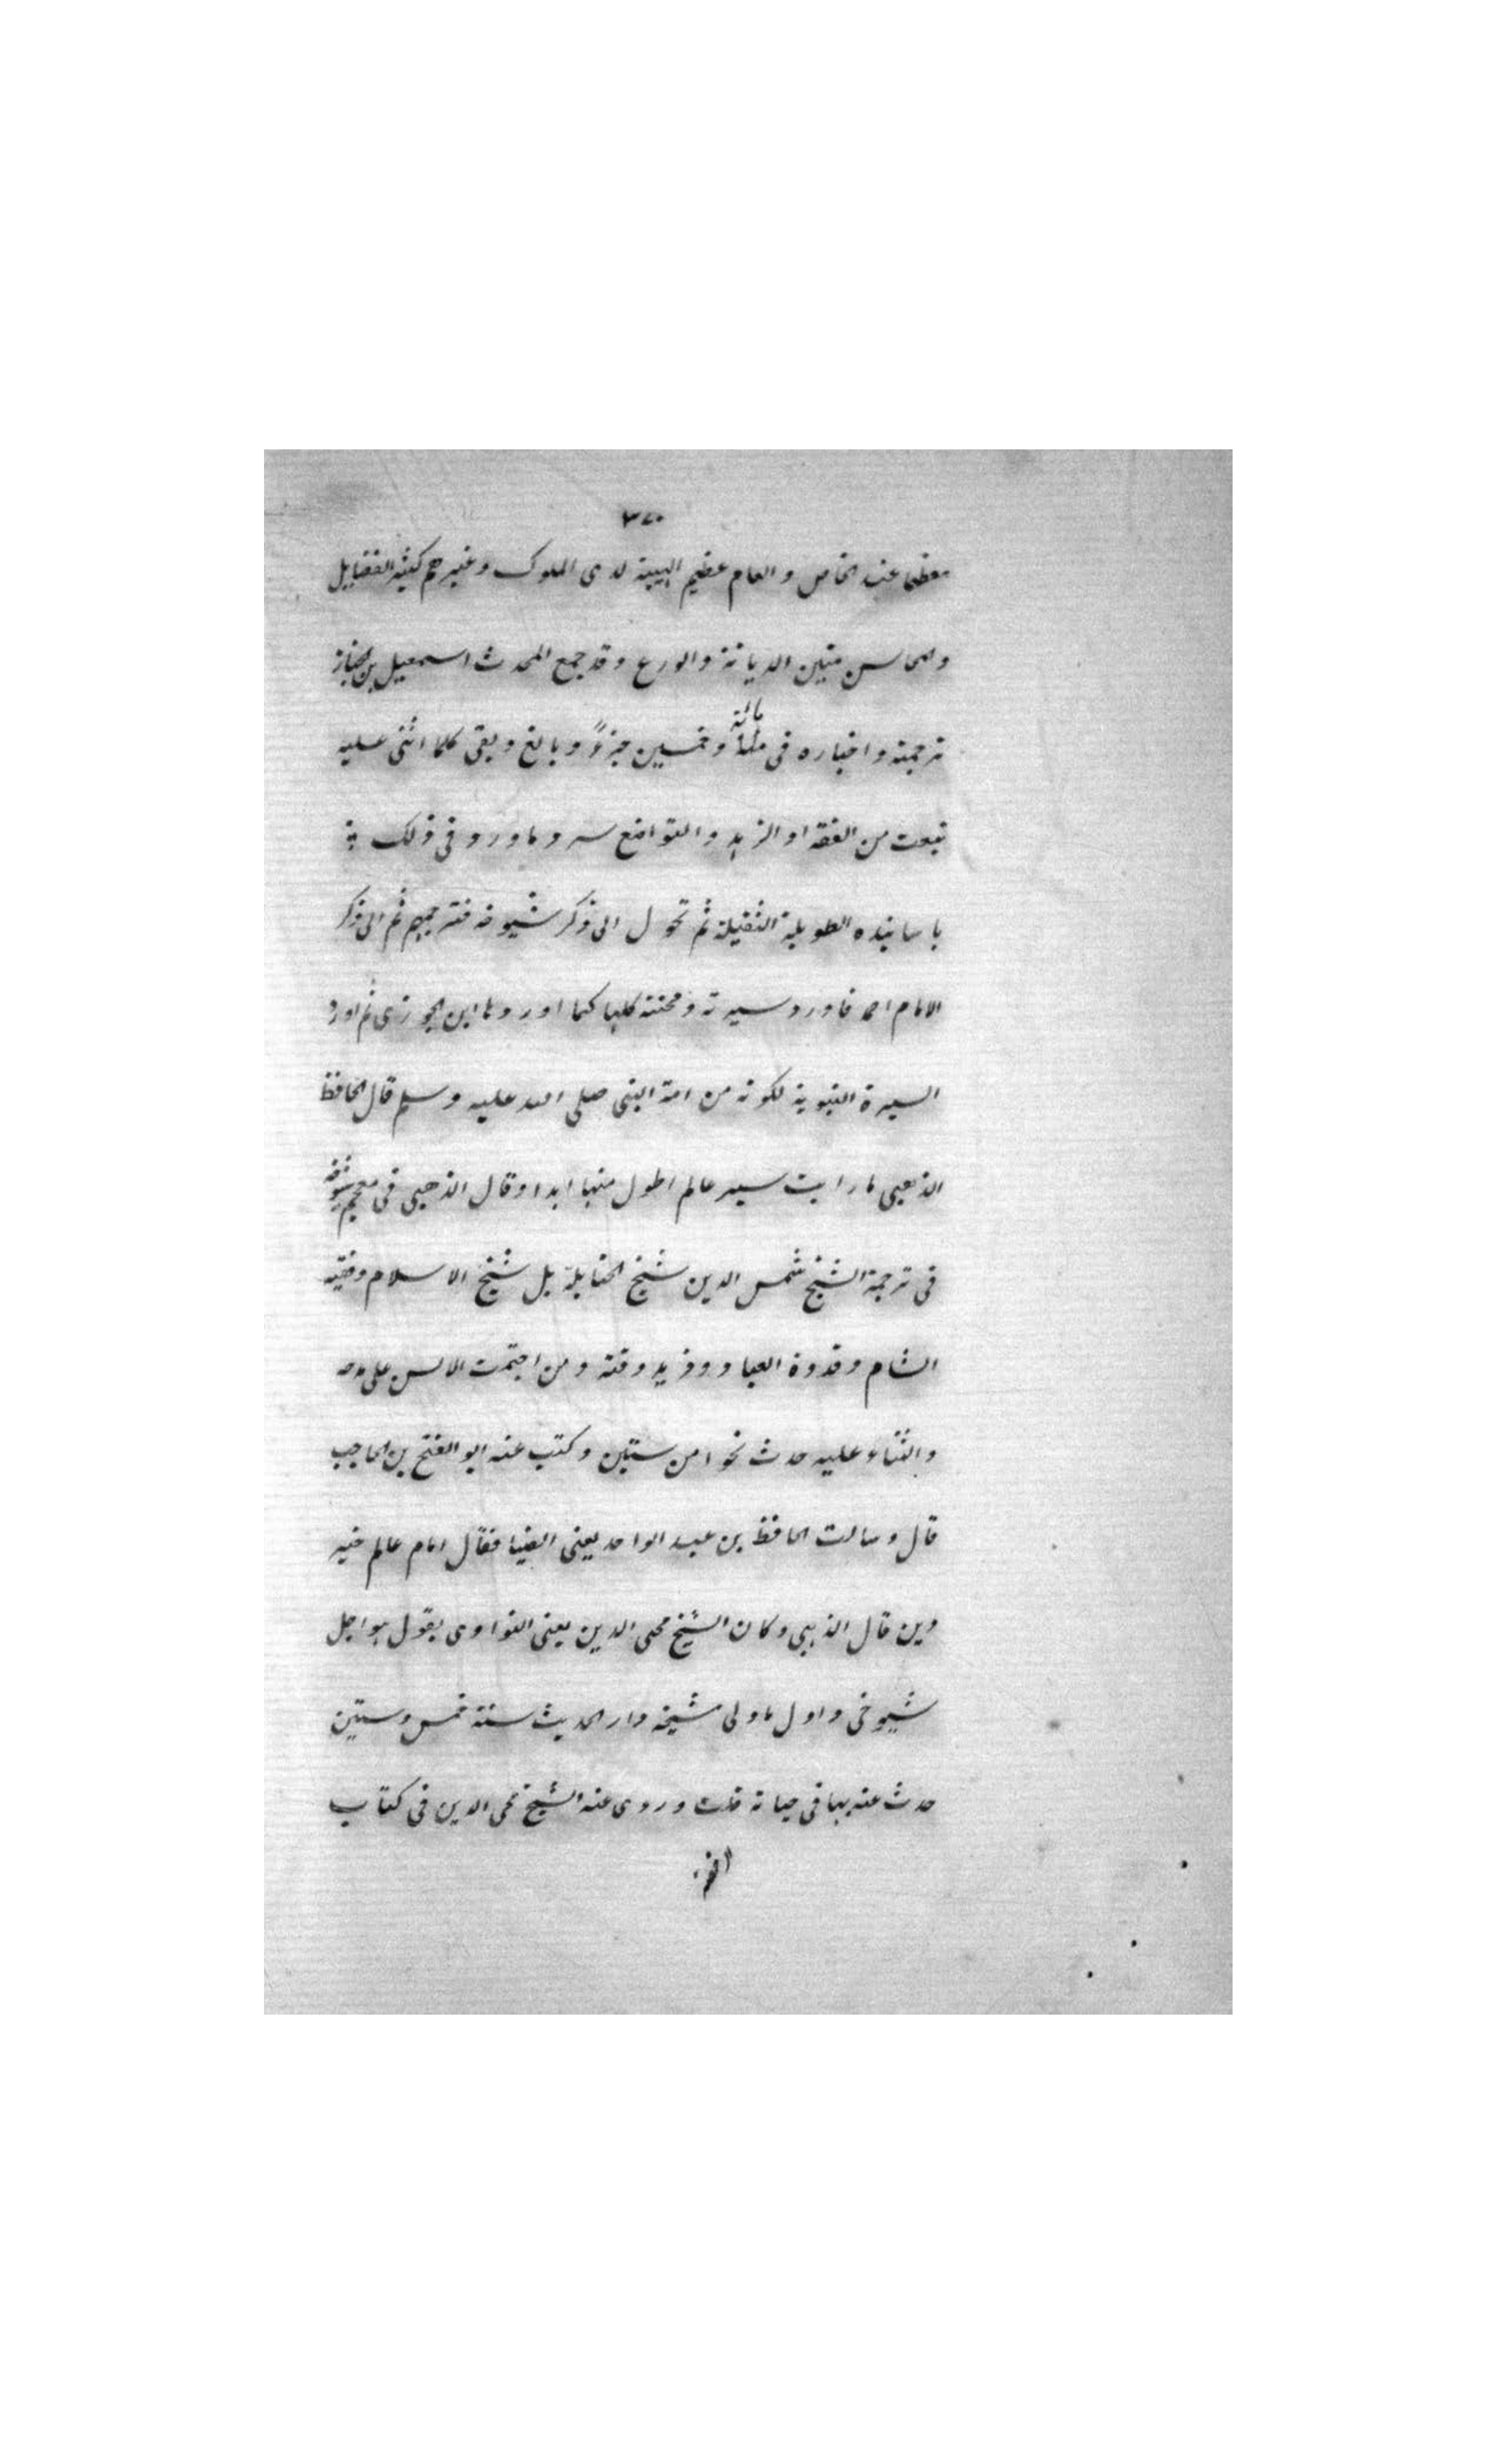 ٣٧٠
معظما عند الخاص والعام عظيم الهيبة لدى الملوك وغيرهم كثير الفضايل
والمحاسن متين الديانة والورع وقد جمع المحدث اسمعيل بن الخباز
ترجمته واخباره فى مائة وخمسين جزءً وبالغ وبقى كلما اثنى عليه
بنعت من الفقه او الزهد والتواضع سرد ما ورد فى ذلك
باسانيده الطويلة الثقيلة ثم تحول الى ذكر شيوخه فترجمهم ثم الى ذكر
الامام احمد فاورد سيرته ومحنته كلها كما اوردها ابن الجوزى ثم اورد
السيرة النبوية لكونه من امة النبى صلى الله عليه وسلم قال الحافظ
الذهبى ما رايت سيرة عالم اطول منها ابدا وقال الذهبى فى معجم شيوخه
فى ترجمة الشيخ شمس الدين شيخ الحنابلة بل شيخ الاسلام وفقيه
الشام وقدوة العباد وفريد وقته ومن اجتمعت الالسن على مدحه
والثناء عليه حدث نحوا من ستين وكتب عنه ابو الفتح بن الحاجب
قال وسالت الحافظ بن عبد الواحد يعنى الضيا فقال امام عالم خير
دين قال الذهبى وكان الشيخ محى الدين يعنى النواوى يقول هو اجل
شيوخى واول ما ولى مشيخة دار الحديث سنة خمس وستين
حدث عنه بها فى حياته قلت وروى عنه الشيخ محى الدين فى كتاب